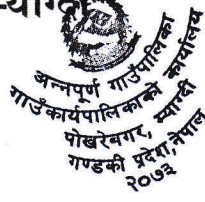 म्याग्दी
अन्नपूर्ण गाउँपालिका
गाउँ कार्यपालिकाको कार्यालय
पोखरेबगर, म्याग्दी
गण्डकी प्रदेश, नेपाल
२०७३